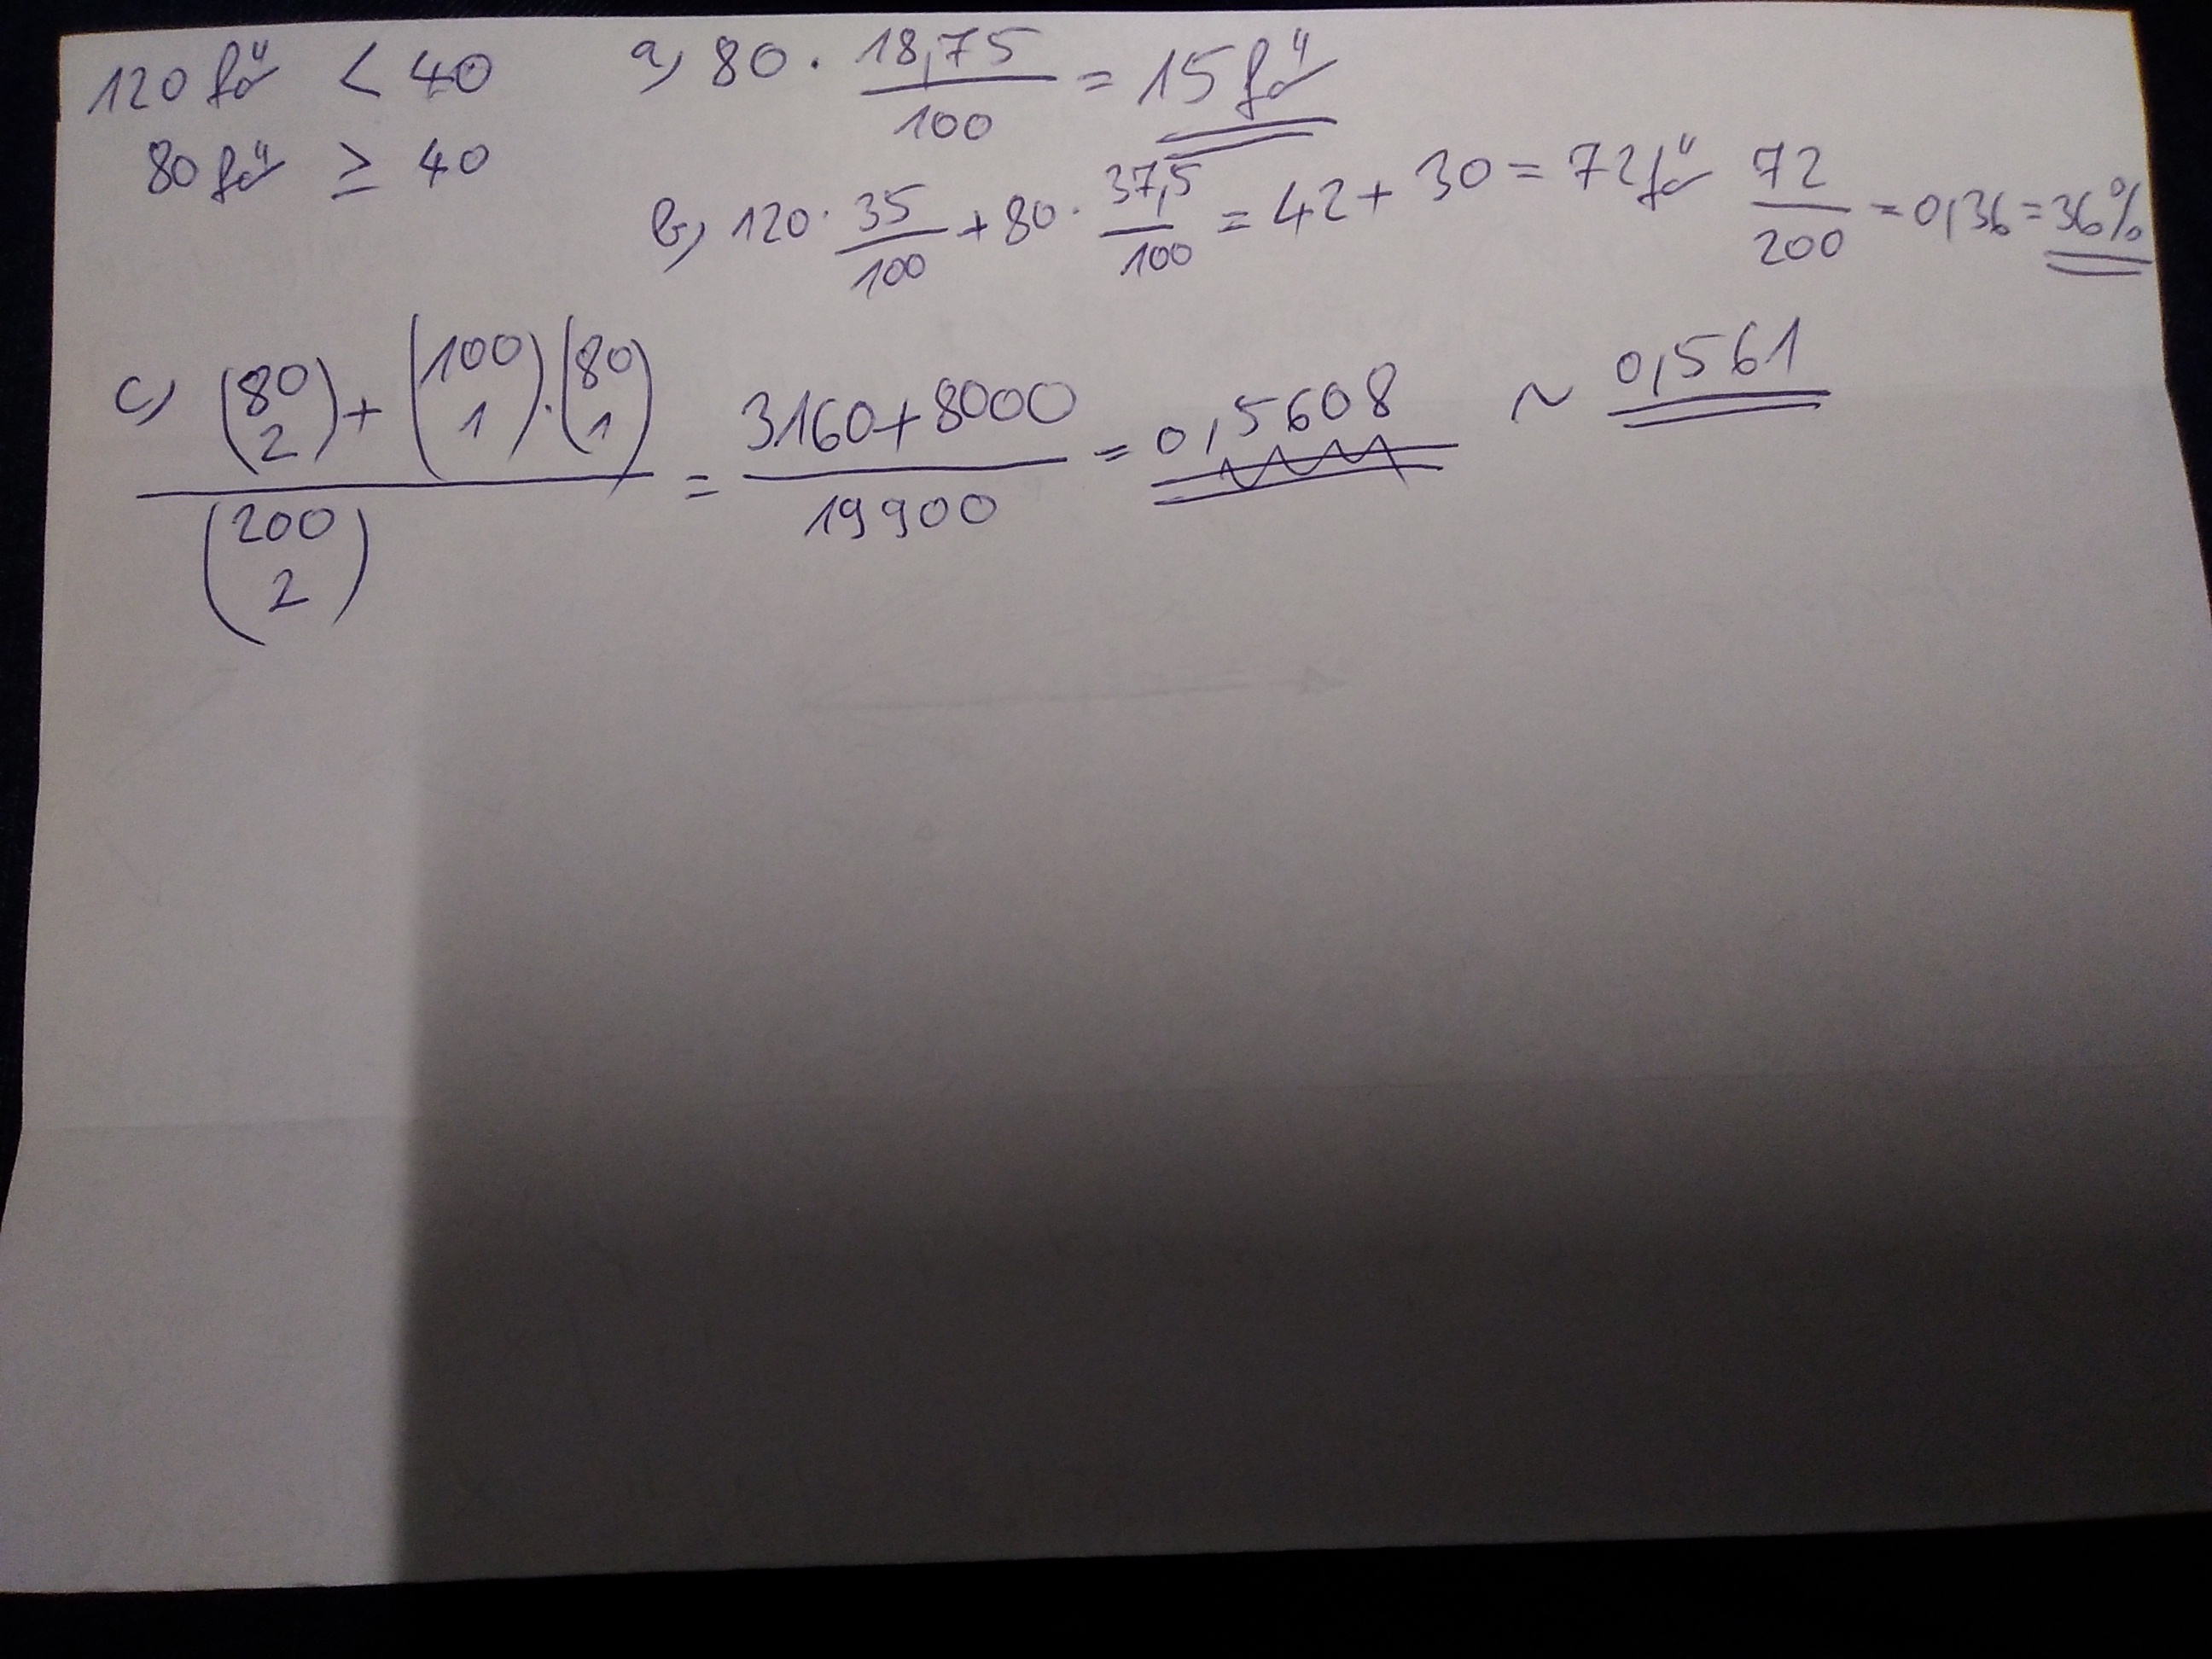 120 fő < 40
80 fő ≥ 40
a) 80 · 18,75/100 = 15 fő
b) 120 · 35/100 + 80 · 37,5/100 = 42 + 30 = 72 fő 72/200 = 0,36 = 36%
c) ((80 2) + (100 1) · (80 1))/(200 2) = (3160 + 8000)/19900 = 0,5608 ~ 0,561